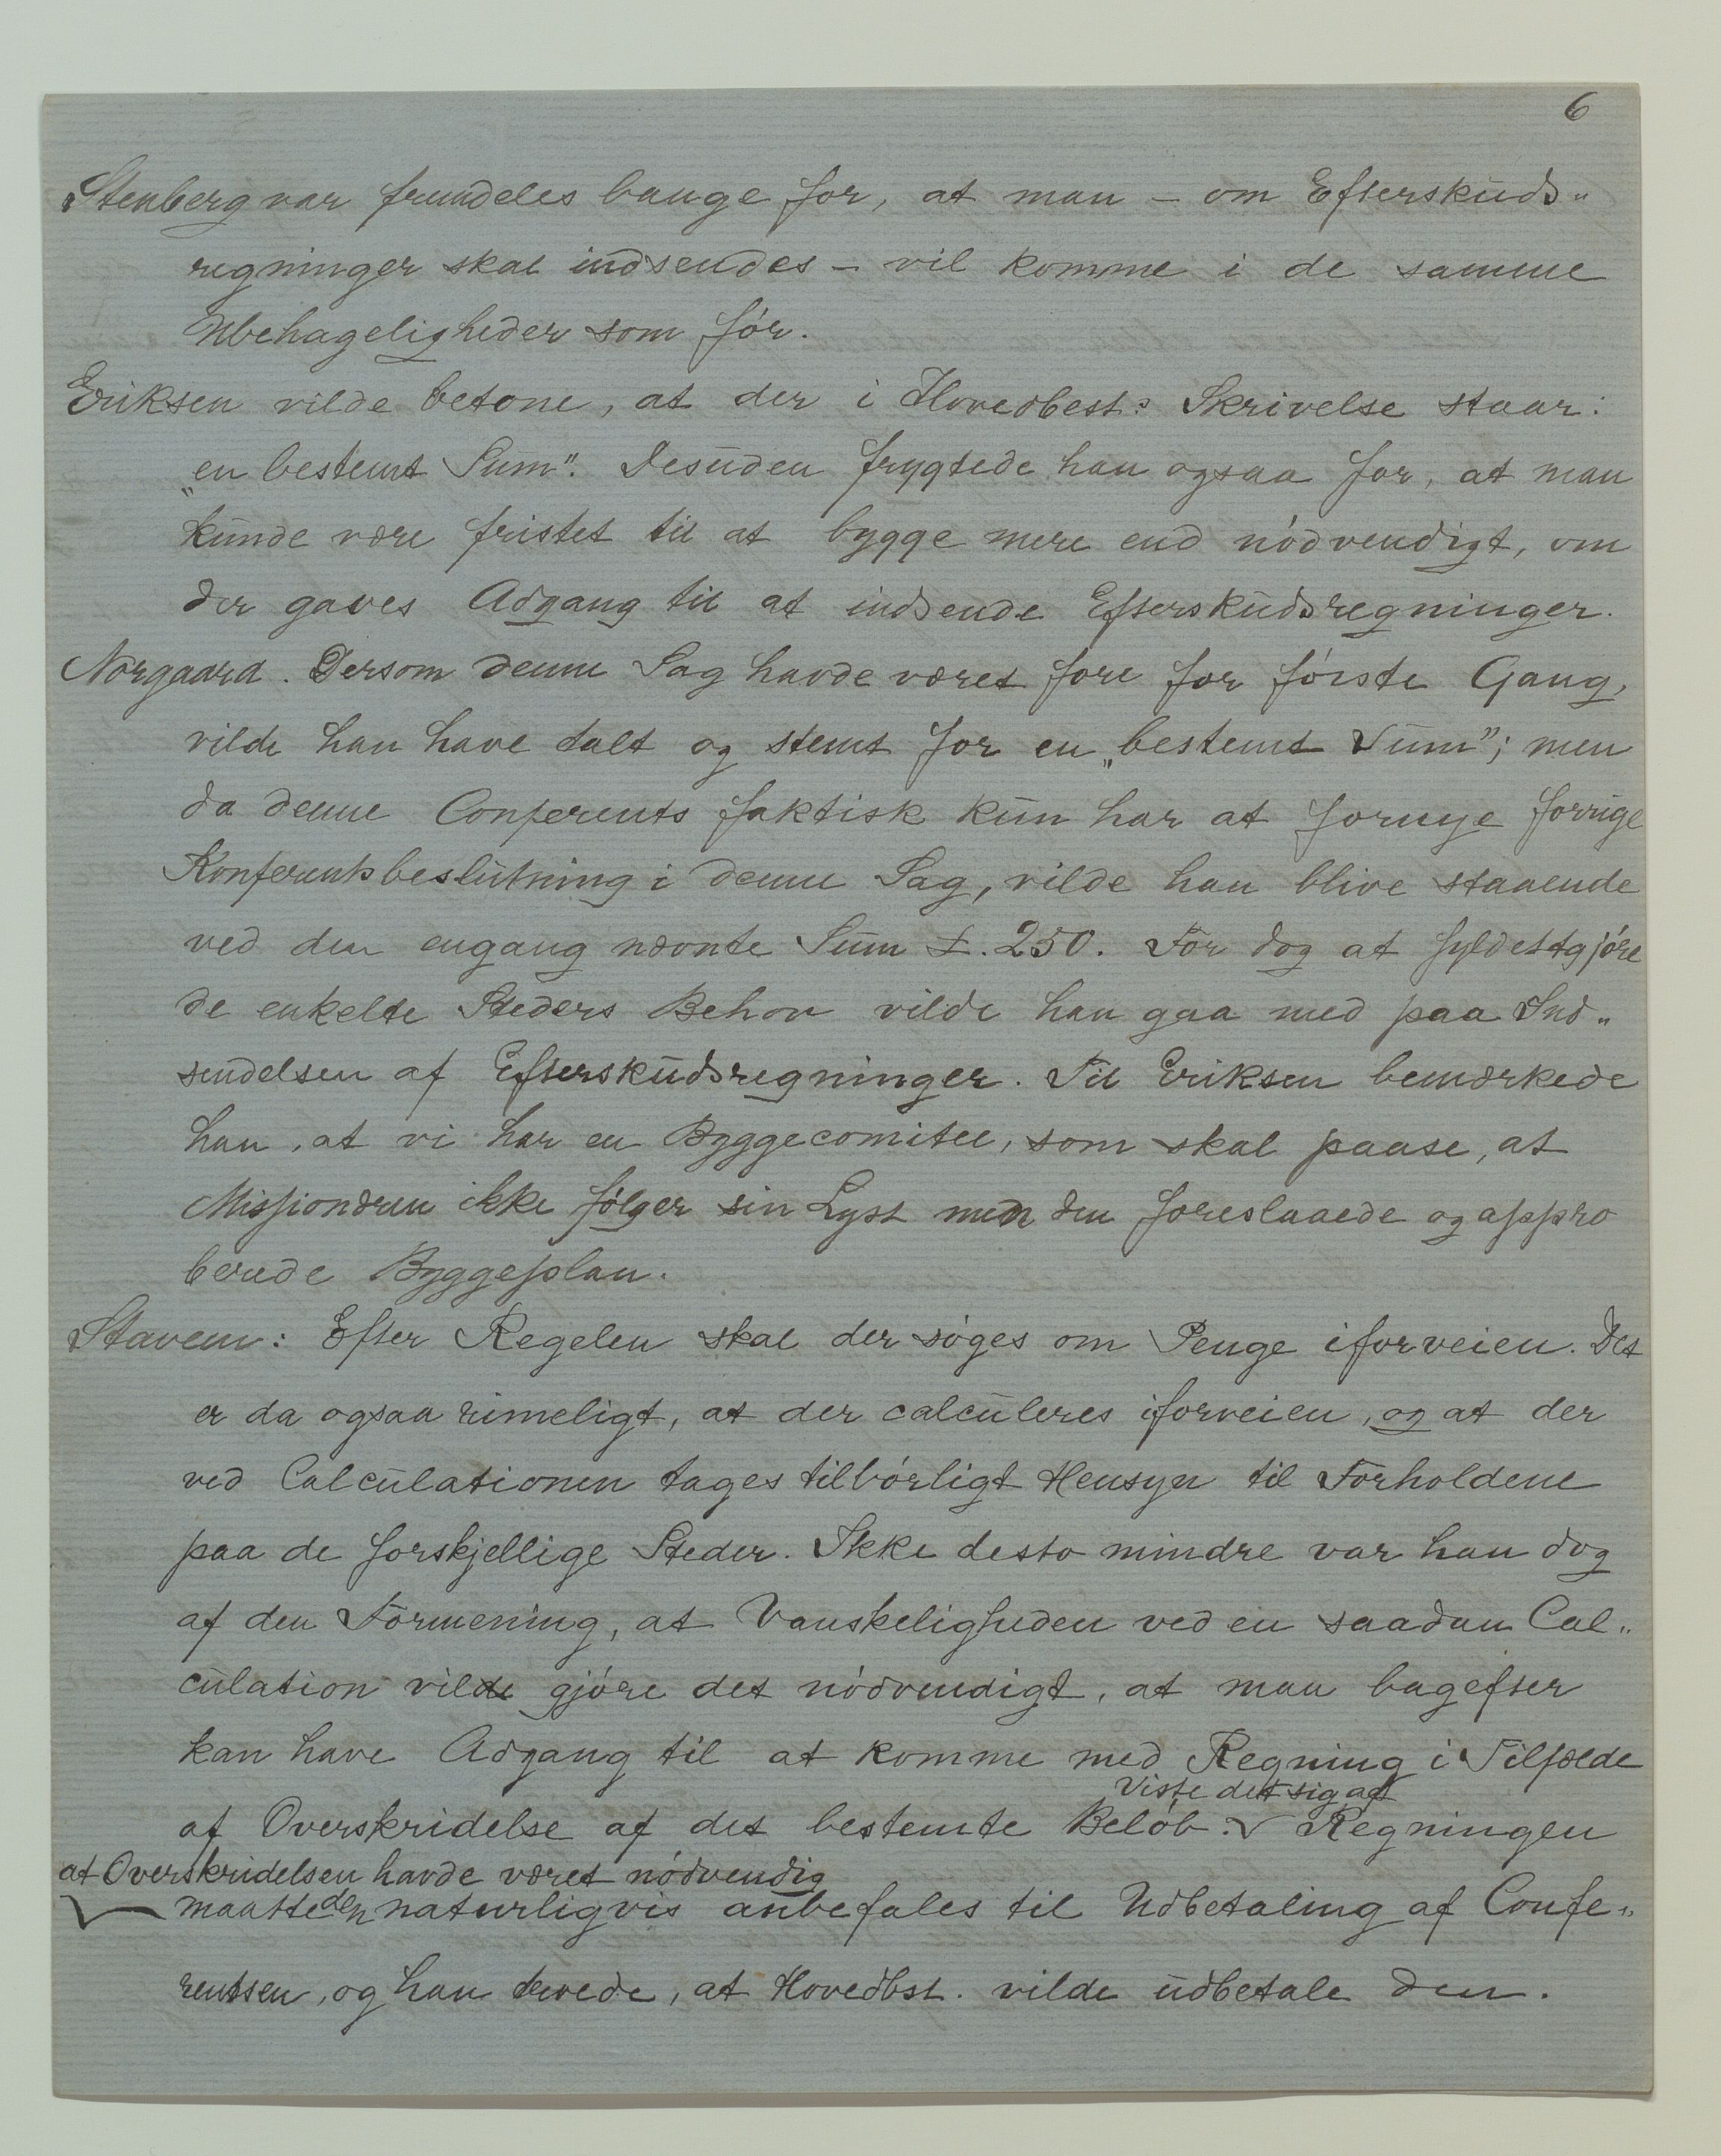 6
Stenberg var fremdeles bange for, at man – om Efterskuds„
regninger skal indsendes – vil komme i de samme
Ubehageligheder som før.
Eriksen vilde betone, at der i Hovedbest:s Skrivelse staar:
„en bestemt Sum". Desuden frygtede han ogsaa for, at man
kunde være fristet til at bygge mere end nødvendigt, om
der gaves Adgang til at indsende Efterskudsregninger.
Norgaard. Dersom denne Sag havde været fore for første Gang,
vilde han have talt og stemt for en „bestemt Sum"; men
da denne Conferents faktisk kun har at fornye forrige
Konferentsbeslutning i denne Sag, vilde han blive staaende
ved den engang nævnte Sum £. 250. For dog at fyldestgjøre
de enkelte Steders Behov vilde han gaa med paa Ind„
sendelsen af Efterskudsregninger. Til Eriksen bemærkede
han, at vi har en Byggecomitee, som skal paase, at
Missionæren ikke følger sin Lyst men den foreslaaede og appro
berede Byggeplan.
Stavem: Efter Regelen skal der søges om Penge iforveien. Det
er da ogsaa rimeligt, at der calculeres iforveien, og at der
ved Calculationen tages tilbørligt Hensyn til Forholdene
paa de forskjellige Steder. Ikke desto mindre var han dog
af den Formening, at Vanskeligheden ved en saadan Cal„
culation vilde gjøre det nødvendigt, at man bagefter
kan have Adgang til at komme med Regning i Tilfælde
Viste det sig at
af Overskridelse af det bestemte Beløb. Regningen
at Overskridelsen havde været nødvendig
maatte den naturligvis anbefales til Udbetaling af Confe„
rentsen, og han troede, at Hovedbst. vilde udbetale den.